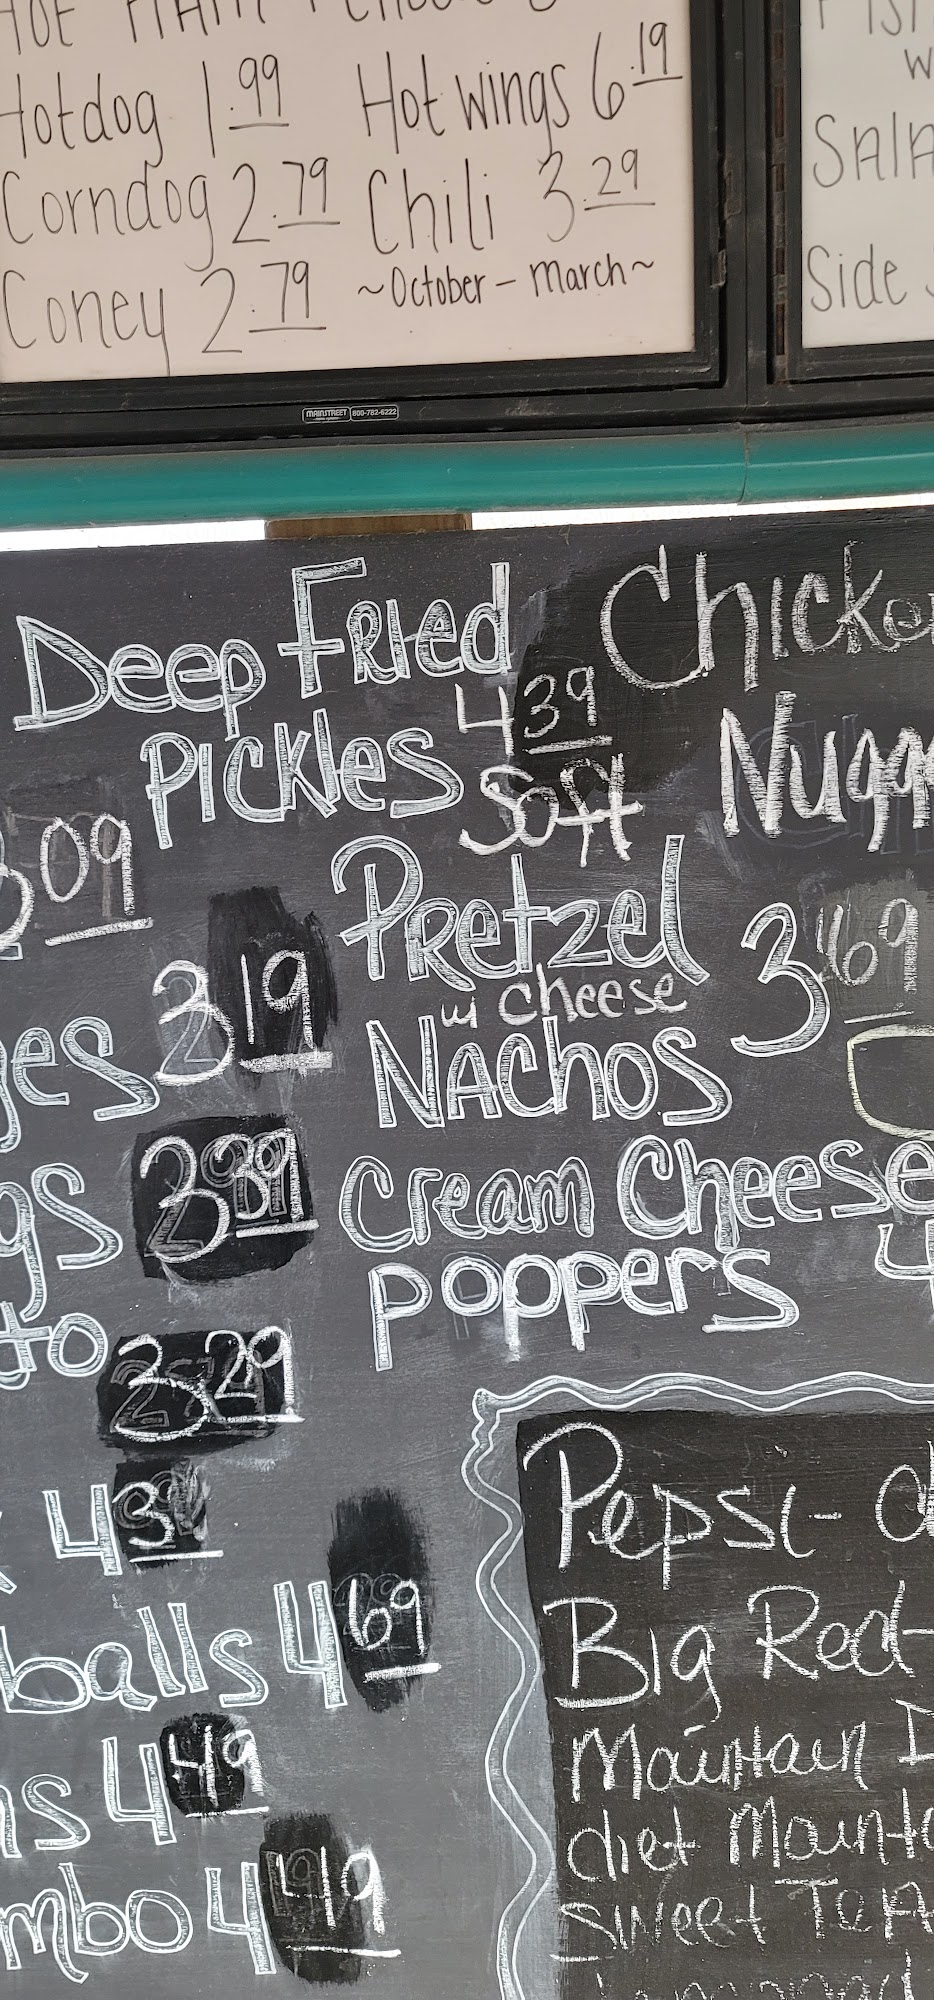 Hotdog 1.99 Hot wings 6.19
Corndog 2.79 Chili 3.29
Coney 2.79 ~October - March~
Side
MAINSTREET 800-782-6222
Deep Fried
Pickles 4 39
Chicken
Nugg
3 09
Soft
Pretzel
w/ cheese
3 69
ges 3 19
Nachos
gs 3 39
Cream Cheese
poppers 4
to 3 29
4 39
balls 4 69
ns 4 49
mbo 4 49
Pepsi- d
Big Red-
Mountain D
diet Mounta
Sweet Tea